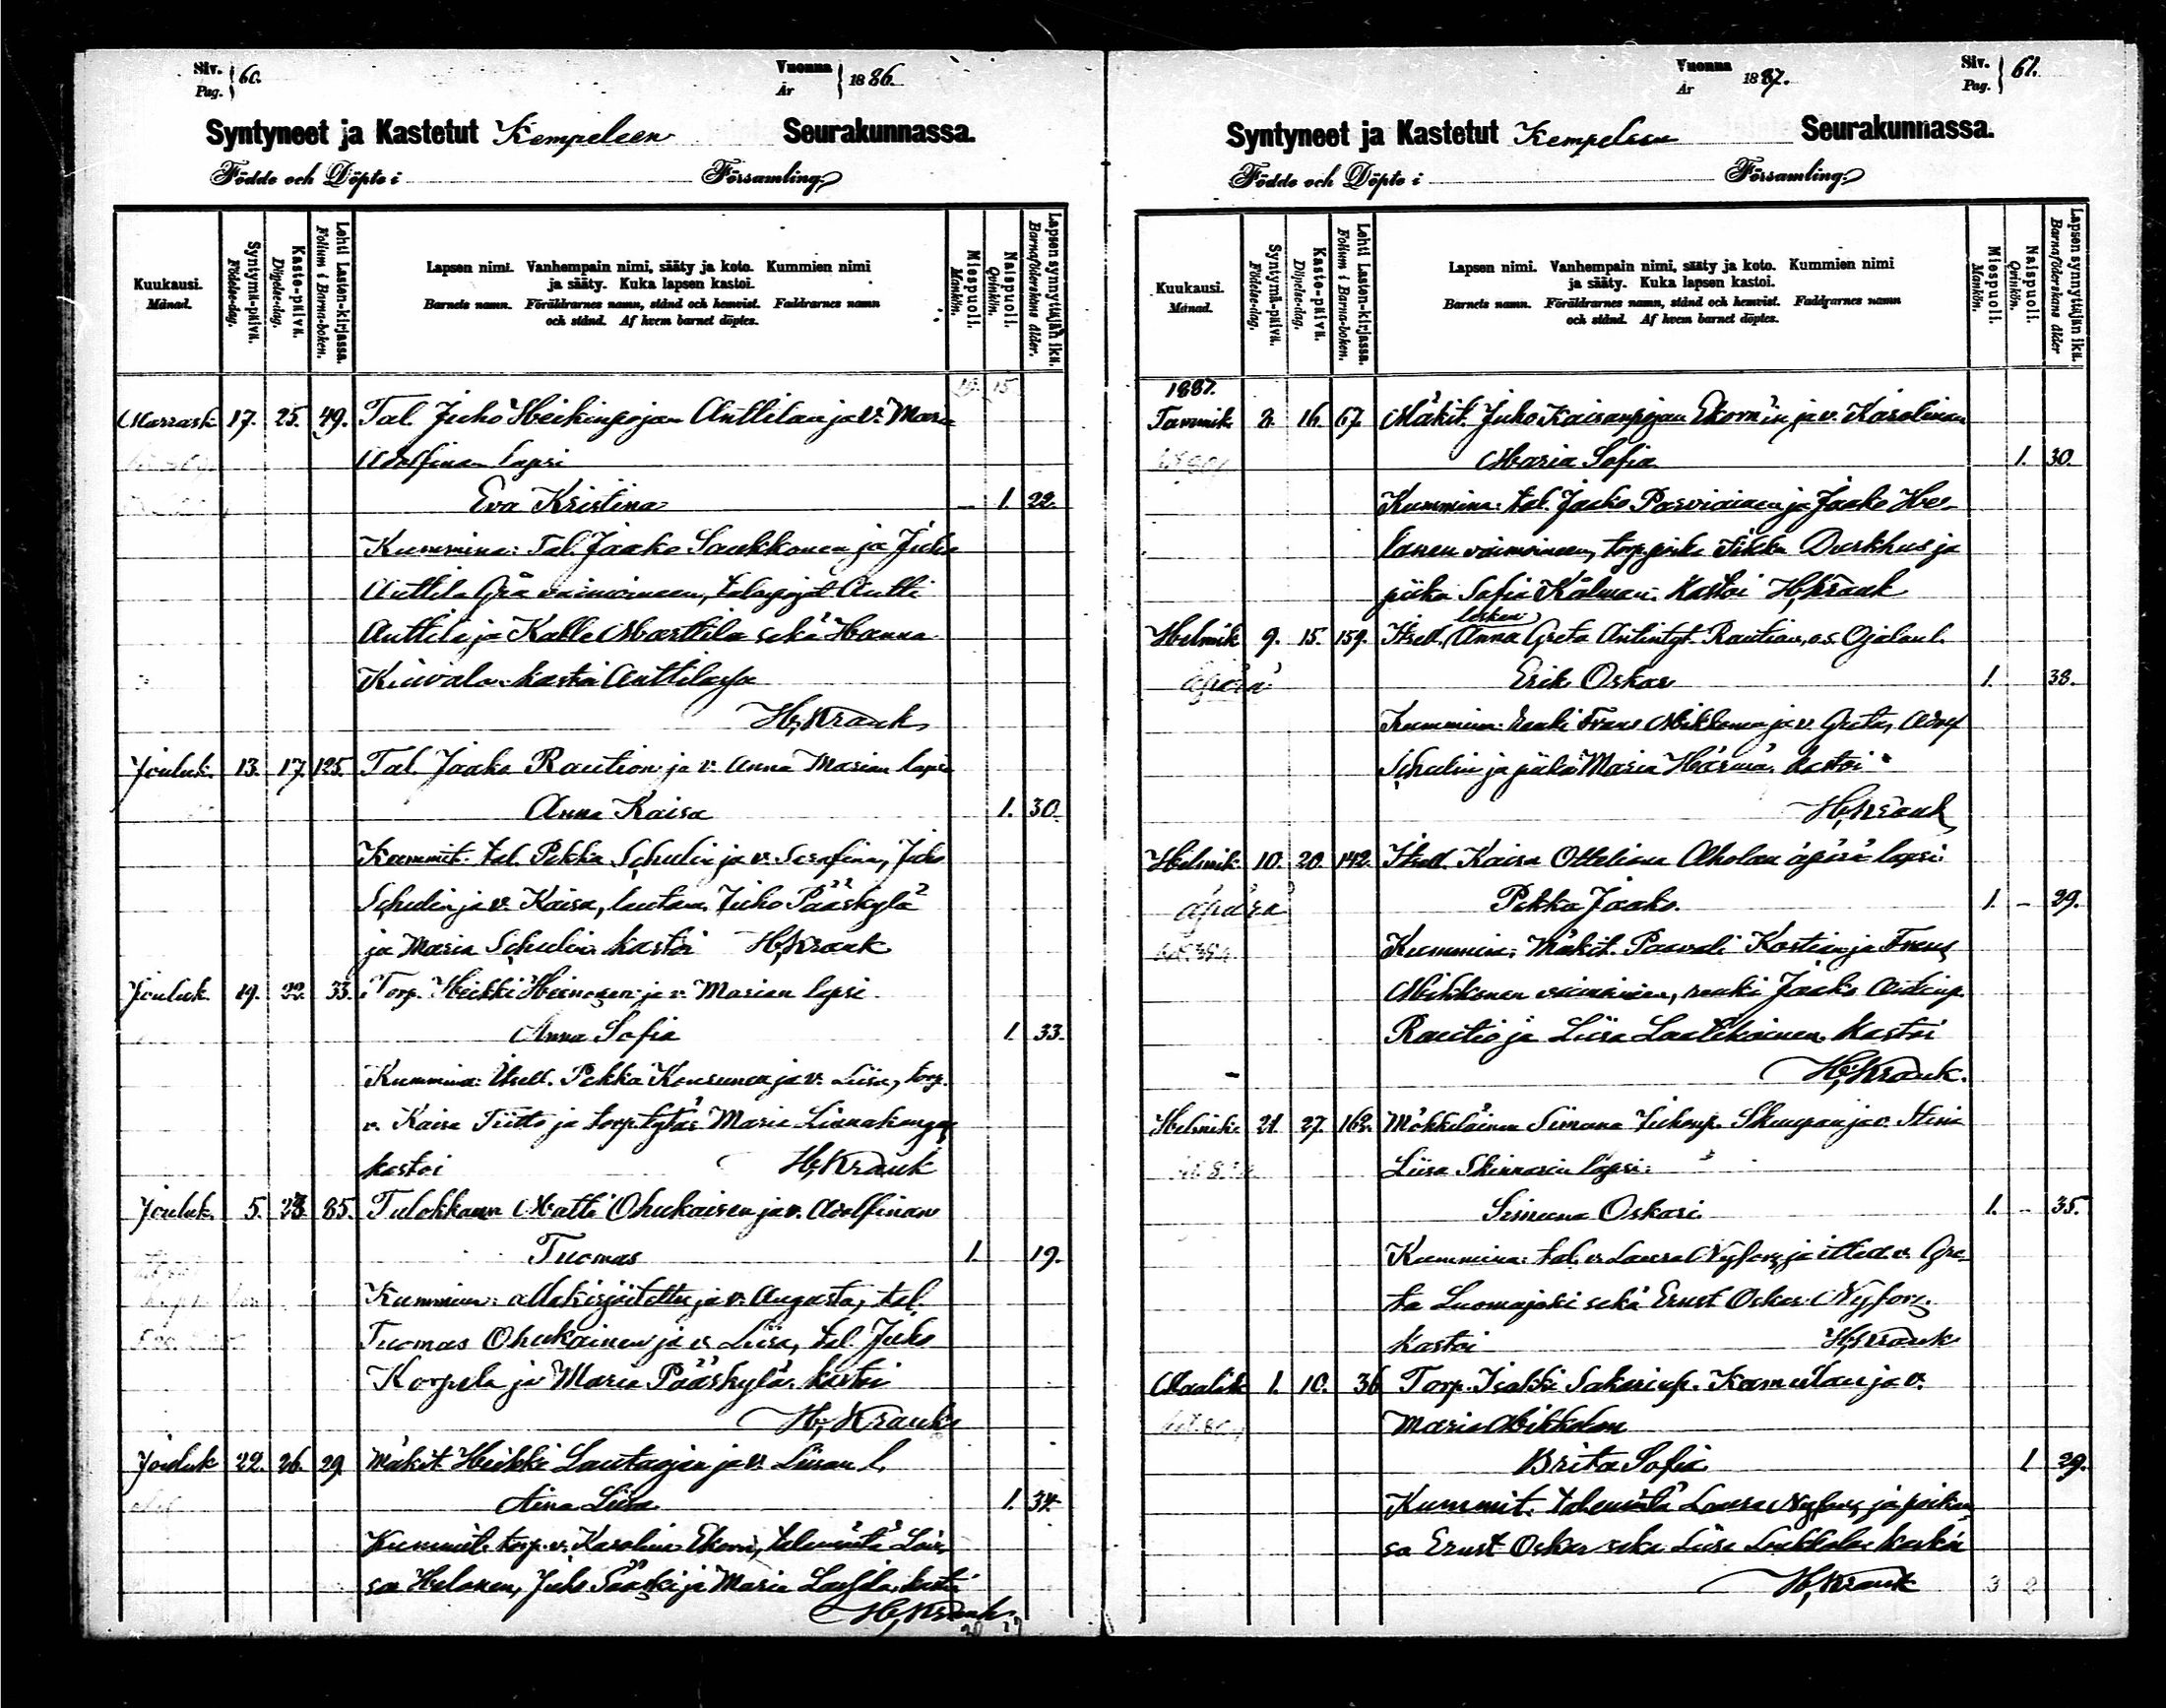 Siv. Pag. } 60.
Vuonna År } 1886.
Syntyneet ja Kastetut Kempeleen Seurakunnassa.
Födde och Döpte i Församling.
Kuukausi. Månad.
Syntymä-päivä. Födelse-dag.
Kaste-päivä. Döpelse-dag.
Lehti Lasten-kirjassa. Folium i Barna-boken.
Lapsen nimi. Vanhempain nimi, sääty ja koto. Kummien nimi
ja sääty. Kuka lapsen kastoi.
Barnets namn. Föräldrarnes namn, stånd och hemvist. Faddrarnes namn
och stånd. Af hvem barnet döptes.
Miespuoli. Mankön.
Naispuoli. Qvinkön.
Lapsen synnyttäjän ikä. Barnaföderskans ålder.
15
Marrask 17. 25. 49. Tal. Juho Heikinpojan Anttilan ja v. Maria
Adolfinan lapsi
Eva Kristina – 1. 22.
Kummina: Tal. Jaako Saukkonen ja Juho
Anttila Grå vaimoineen, talonpojat Antti
Anttila ja Kalle Marttila sekä Hanna
Kiiwala. kastoi Anttilassa
H. Krank
Jouluk. 13. 17. 125. Tal. Jaako Raution ja v. Anna Marian lapsi
Anna Kaisa 1. 30.
Kummit. tal. Pekka Schulin ja v. Serafina, Juho
Schulin ja v. Kaisa, lautam. Juho Pääskylä
ja Maria Schulin. kastoi H. Krank
Jouluk. 19. 22. 33. Torp. Heikki ja v. Marian lapsi
Anna Sofia 1. 33.
Kummina: Itsell. Pekka ja v. Liisa, torp.
v. Kaisa Tiitto ja torp. tytär Maria Linnakangas
kastoi H. Krank
Jouluk. 5. 23. 85. Tulokkaan Matti Ohukaisen ja v. Adolfinan
Tuomas 1. 19.
Kummina: allekirjoitettu ja v. Augusta, tal.
Tuomas Ohukainen ja v. Liisa, tal. Juho
Korpela ja Maria Pääskylä. kastoi
H. Krank
Jouluk 22. 26. 29. Mäkit. Heikki Lautaojan ja v. Liisan l.
Aina Liisa 1. 34.
Kummit. torp. v. Karolina Ekorn, talemäntä Lovi-
sa Helanen, Juho Sääski ja Maria kastoi
H. Krank
20 27
Vuonna År 1887.
Siv. Pag. } 61.
Syntyneet ja Kastetut Kempeleen Seurakunnassa.
Födde och Döpte i Församling.
Kuukausi. Månad.
Syntymä-päivä. Födelse-dag.
Kaste-päivä. Döpelse-dag.
Lehti Lasten-kirjassa. Folium i Barna-boken.
Lapsen nimi. Vanhempain nimi, sääty ja koto. Kummien nimi
ja sääty. Kuka lapsen kastoi.
Barnets namn. Föräldrarnes namn, stånd och hemvist. Faddrarnes namn
och stånd. Af hvem barnet döptes.
Miespuoli. Mankön.
Naispuoli. Qvinkön.
Lapsen synnyttäjän ikä. Barnaföderskans ålder
1887.
Tammik 2. 16. 67. Mäkit. Juho Kaisanpojan Ekorn'in ja v. Karolinan
Maria Sofia 1. 30.
Kummina: tal. Jaako Parviainen ja Jaako He-
lanen vaimoineen, torp. poika Durkhus ja
piika Sofia Kälman. Kastoi H. Krank
Helmik 9. 15. 159. Itsell. lesken Anna Greta Antintyt. Raution, o.s. Ojalan l.
äpärä Erik Oskar 1. 38.
Kummina: renki Frans Mikkonen ja v. Greta, Adolf
Schulin ja piika Maria Härmä. kastoi
H. Krank
Helmik 10. 20. 142. Itsell. Kaisa Ottelian Aholan äpärä lapsi
äpärä Pekka Jaako. 1. – 29.
Kummina: Mäkit. Paavali Kostian ja Frans
Mikkonen vaimoineen, renki Jaako
Rautio ja Liisa Laatikainen. kastoi
H. Krank.
Helmik. 21. 27. 162. Mökkiläinen Simuna Juhonp. ja v. Stina
Liisa Skinnarin lapsi:
Simuna Oskari 1. – 35.
Kummina: tal. v. Laura Nyfors ja itsell. v. Gre-
ta Luomajoki sekä Ernst Oskar Nyfors.
kastoi H. Krank
Maalisk 1. 10. 36 Torp. Isakki Sakarinp. ja v.
Maria
Brita Sofia 1 29.
Kummit. talemäntä Laura Nyfors ja poikan-
sa Ernst Oskar sekä Liisa kastoi
H. Krank 3 2